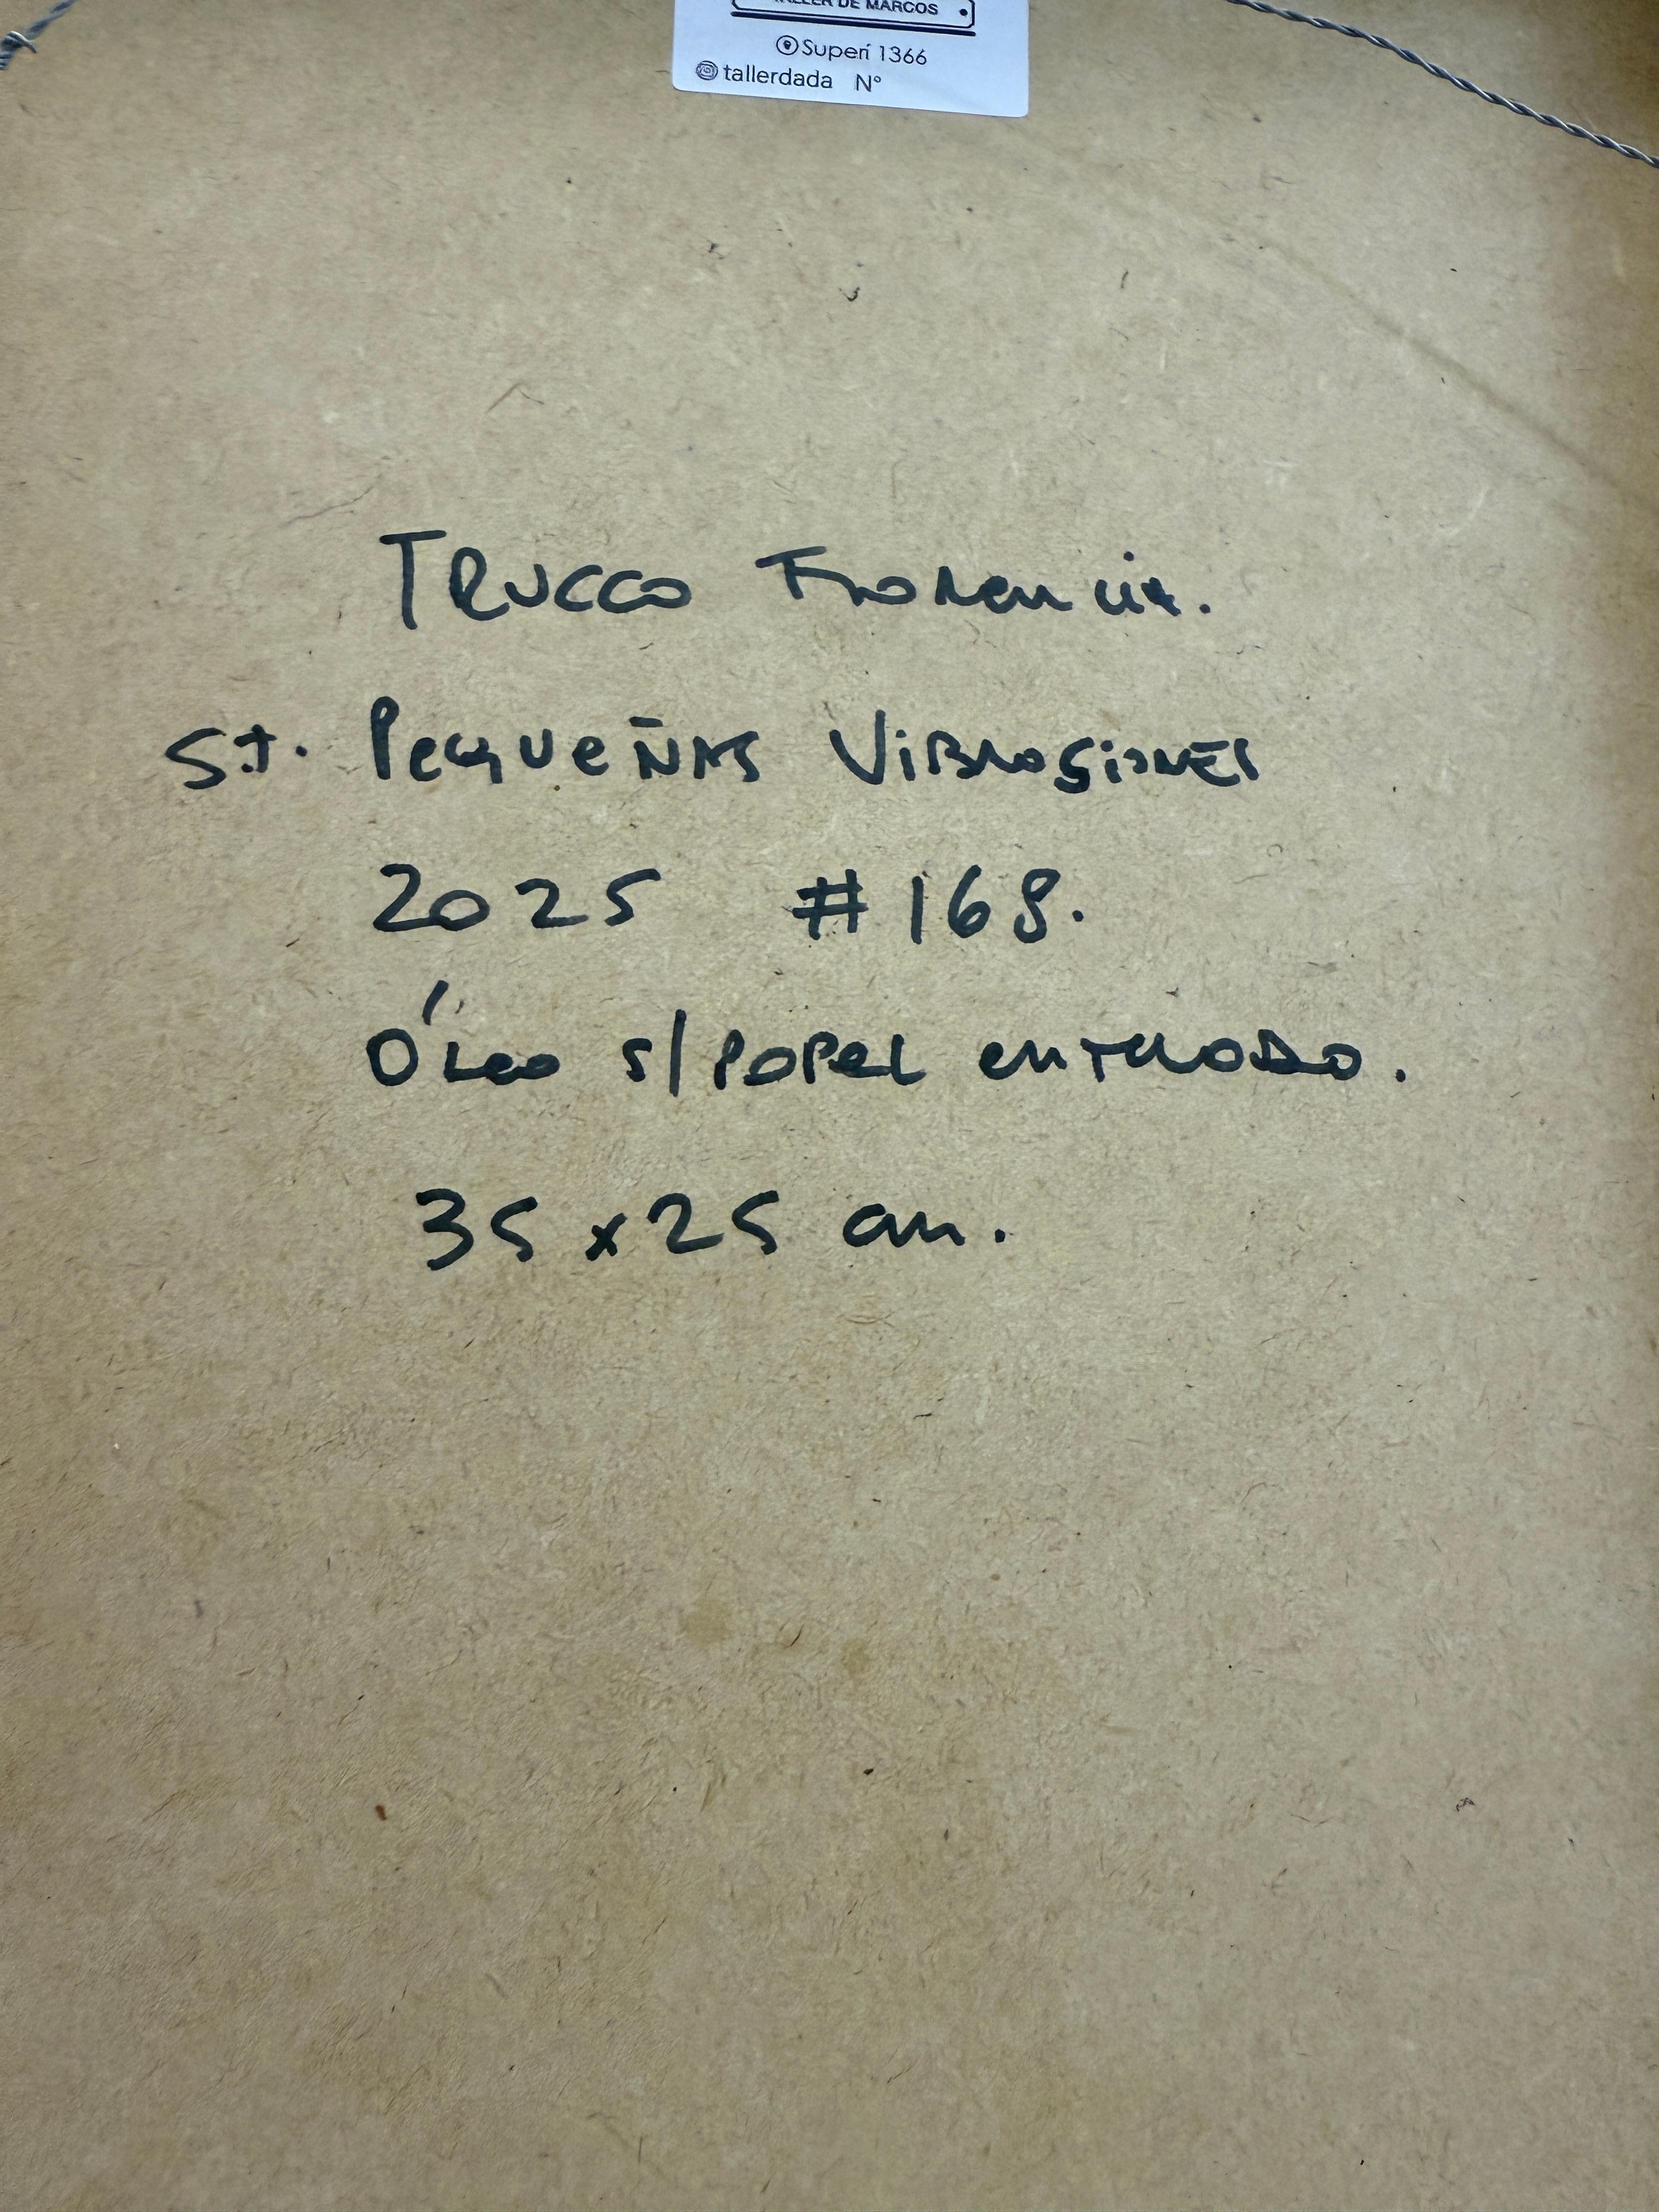 TALLER DE MARCOS
Superí 1366
tallerdada N°
TRUCCO Florencia.
S.t. PequeÑAS ViBRaSioNES
2025 #168.
Óleo s/PaPeL enteLaDo.
35 x 25 cm.